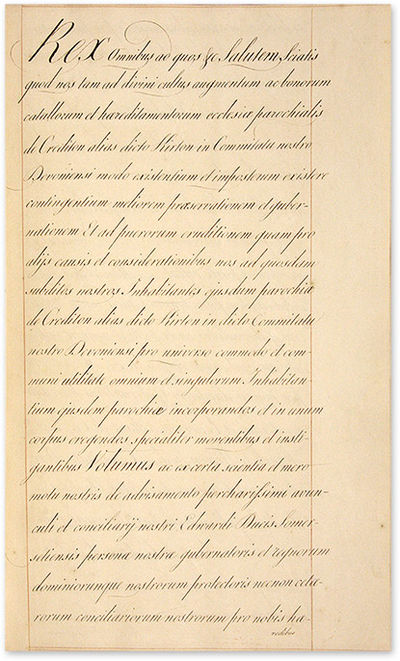 Rex Omnibus ad quos &c Salutem Sciatis
quod nos tam ad divini cultus augmentum ac bonorum
catallorum et hæreditamentorum ecclesiæ parochialis
de Crediton alias dicto Kirton in Commitatu nostro
Devoniensi modo existentium et imposterum existere
contingentium meliorem præservationem et guber-
nationem Et ad puerorum eruditionem quam pro
alijs causis et considerationibus nos ad quosdem
subditos nostros Inhabitantes ejusdem parochiæ
de Crediton alias dicto Kirton in dicto Commitatu
nostro Devoniensi pro universo commodo et com-
muni utilitate omnium et singulorum Inhabitan-
tium ejusdem parochiæ incorporandos et in unum
corpus erigendos specialiter moventibus et insti-
gantibus Volumus ac ex certa scientia et mero
motu nostris de advisamento percharissimi avun-
culi et conciliarij nostri Edwardi Ducis Somer-
setiensis personæ nostræ gubernatoris et regnorum
dominiorumque nostrorum protectoris necnon cete-
rorum conciliariorum nostrorum pro nobis hæ-
redibus